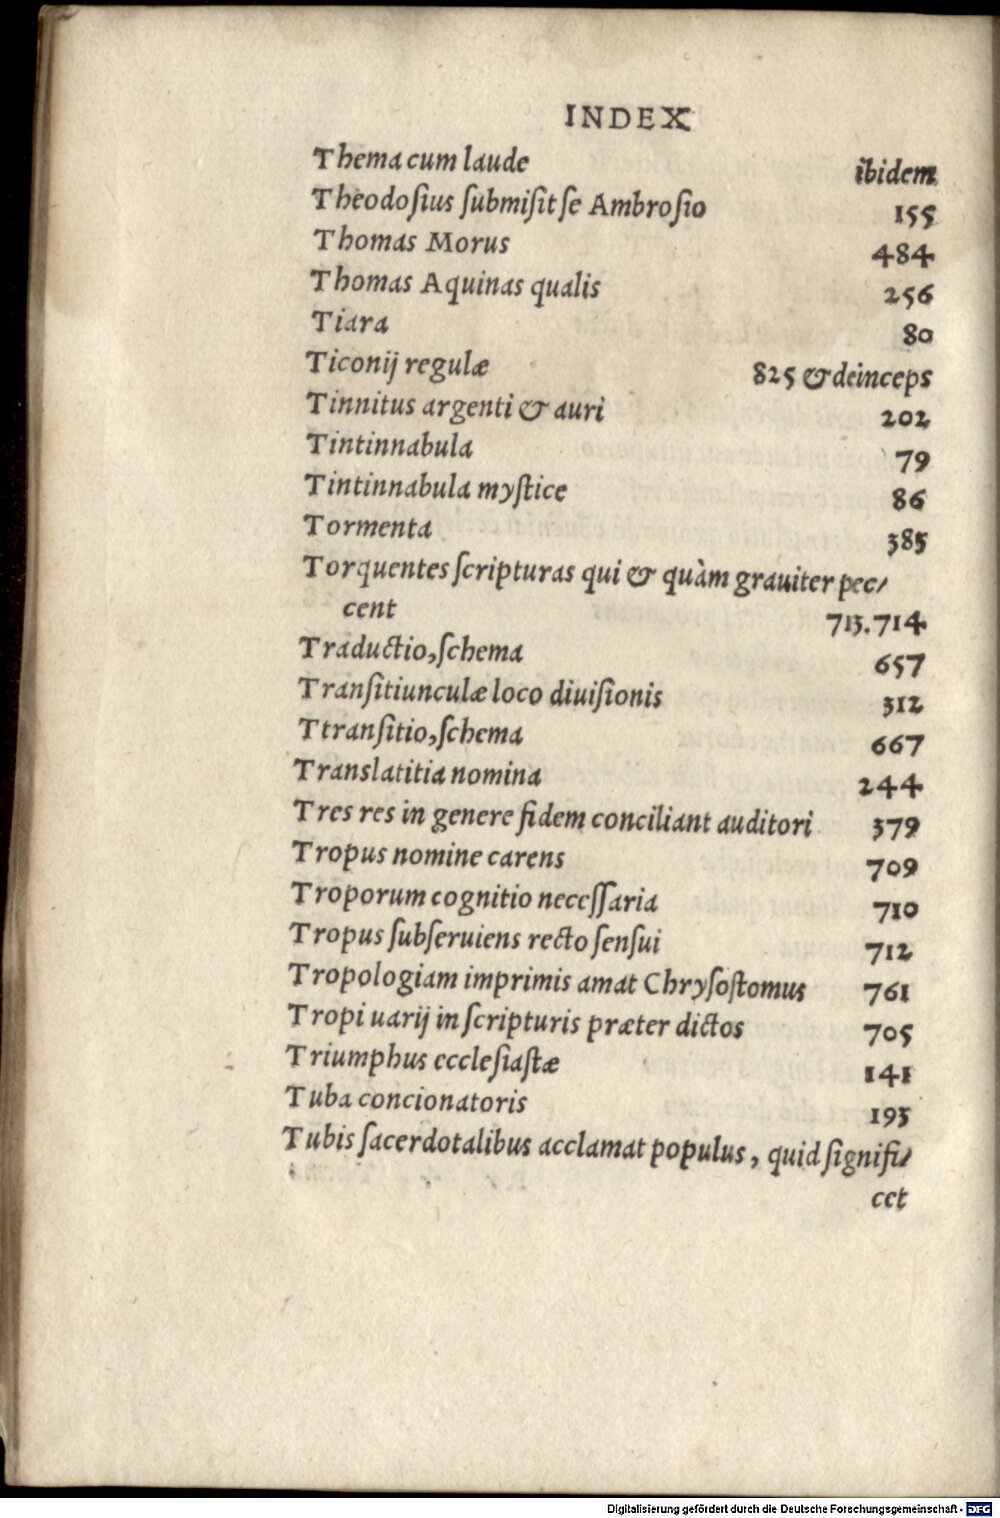 INDEX
Thema cum laude ibidem
Theodoſius ſubmiſit ſe Ambroſio 155
Thomas Morus 484
Thomas Aquinas qualis 256
Tiara 80
Ticonij regulæ 825 & deinceps
Tinnitus argenti & auri 202
Tintinnabula 79
Tintinnabula myſtice 86
Tormenta 385
Torquentes ſcripturas qui & quàm grauiter pec/
cent 713.714
Traductio, ſchema 657
Tranſitiunculæ loco diuiſionis 312
Ttranſitio, ſchema 667
Translatitia nomina 244
Tres res in genere fidem conciliant auditori 379
Tropus nomine carens 709
Troporum cognitio neceſſaria 710
Tropus ſubſeruiens recto ſenſui 712
Tropologiam imprimis amat Chryſoſtomus 761
Tropi uarij in ſcripturis præter dictos 705
Triumphus eccleſiaſtæ 141
Tuba concionatoris 193
Tubis ſacerdotalibus acclamat populus, quid ſignifi/
cet
Digitalisierung gefördert durch die Deutsche Forschungsgemeinschaft - DFG